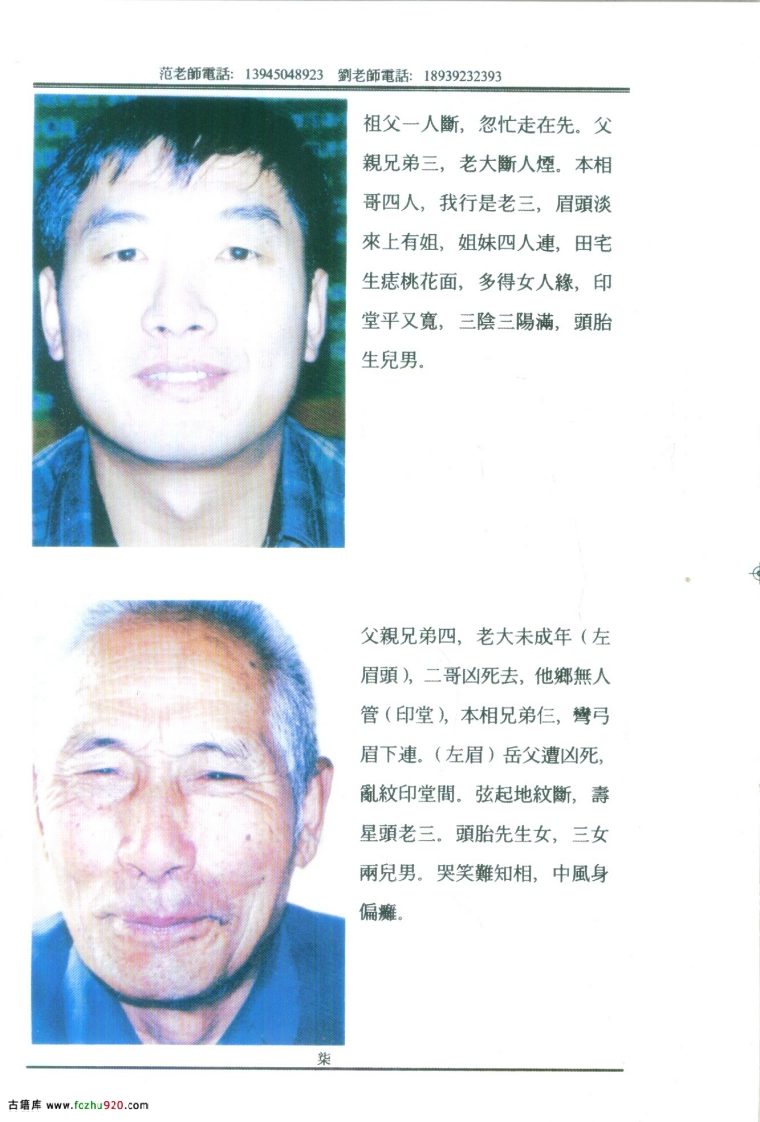 范老師電話: 13945048923 劉老師電話: 18939232393
祖父一人斷, 忽忙走在先。父
親兄弟三, 老大斷人煙。本相
哥四人, 我行是老三, 眉頭淡
來上有姐, 姐妹四人連, 田宅
生痣桃花面, 多得女人緣, 印
堂平又寬, 三陰三陽滿, 頭胎
生兒男。
父親兄弟四, 老大未成年(左
眉頭), 二哥凶死去, 他鄉無人
管(印堂), 本相兄弟仨, 彎弓
眉下連。(左眉)岳父遭凶死,
亂紋印堂間。弦起地紋斷, 壽
星頭老三。頭胎先生女, 三女
兩兒男。哭笑難知相, 中風身
偏癱。
柒
古籍库 www.fozhu920.com